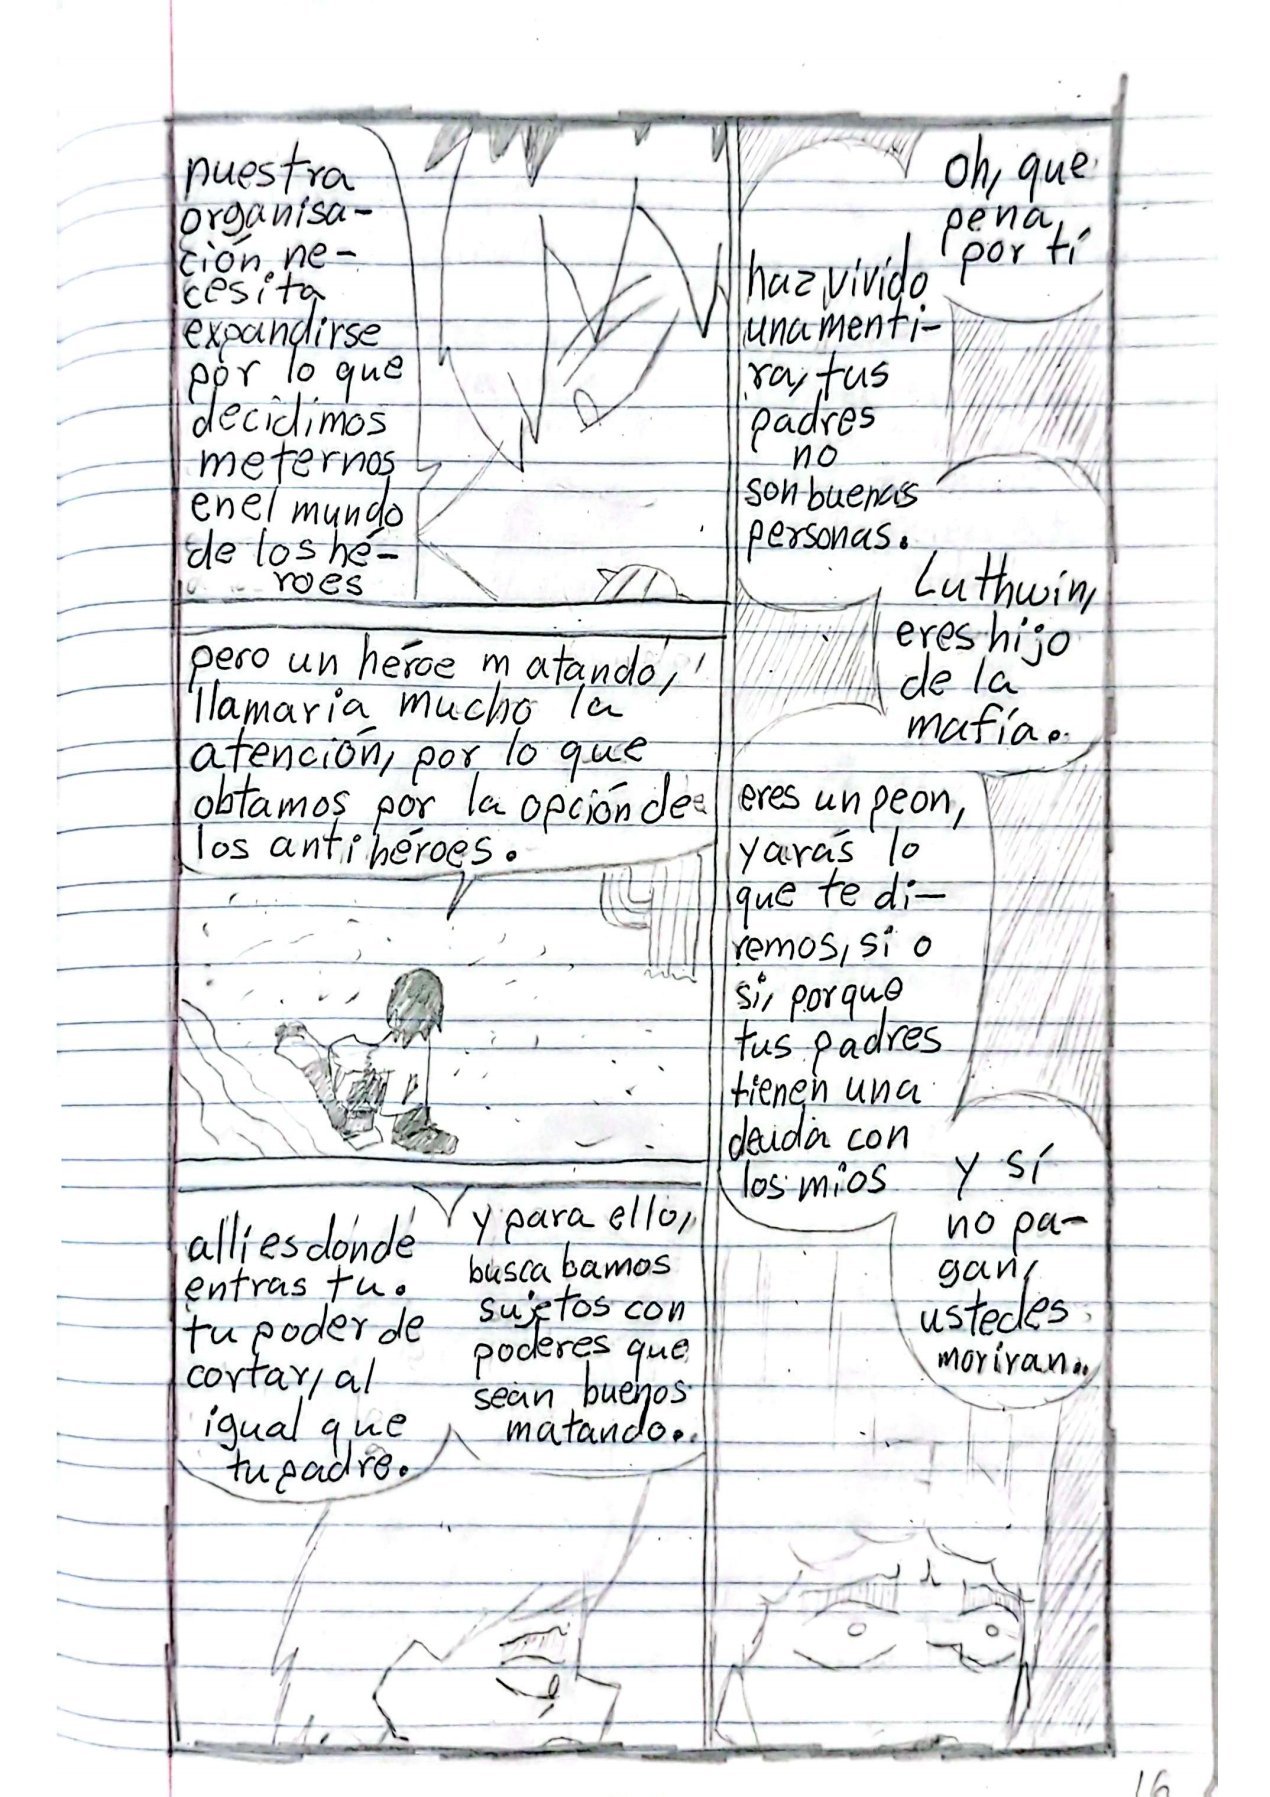 Oh, que
pena
por tí
haz vivido
una menti-
ra, tus
padres
no
son buenas
personas.
Luthwin,
eres hijo
de la
mafía.
eres un peon,
y arás lo
que te di-
remos, si o
si, porque
tus padres
tienen una
deuda con
los mios
y sí
no pa-
gan,
ustedes
moriran..
nuestra
organisa-
ción ne-
cesita
expandirse
por lo que
decidimos
meternos
en el mundo
de los hé-
roes
pero un héroe matando,
llamaria mucho la
atención, por lo que
obtamos por la opción de
los antihéroes.
y para ello,
buscabamos
sujetos con
poderes que
sean buenos
matando..
alli es dónde
entras tu.
tu poder de
cortar, al
igual que
tu padre.
16